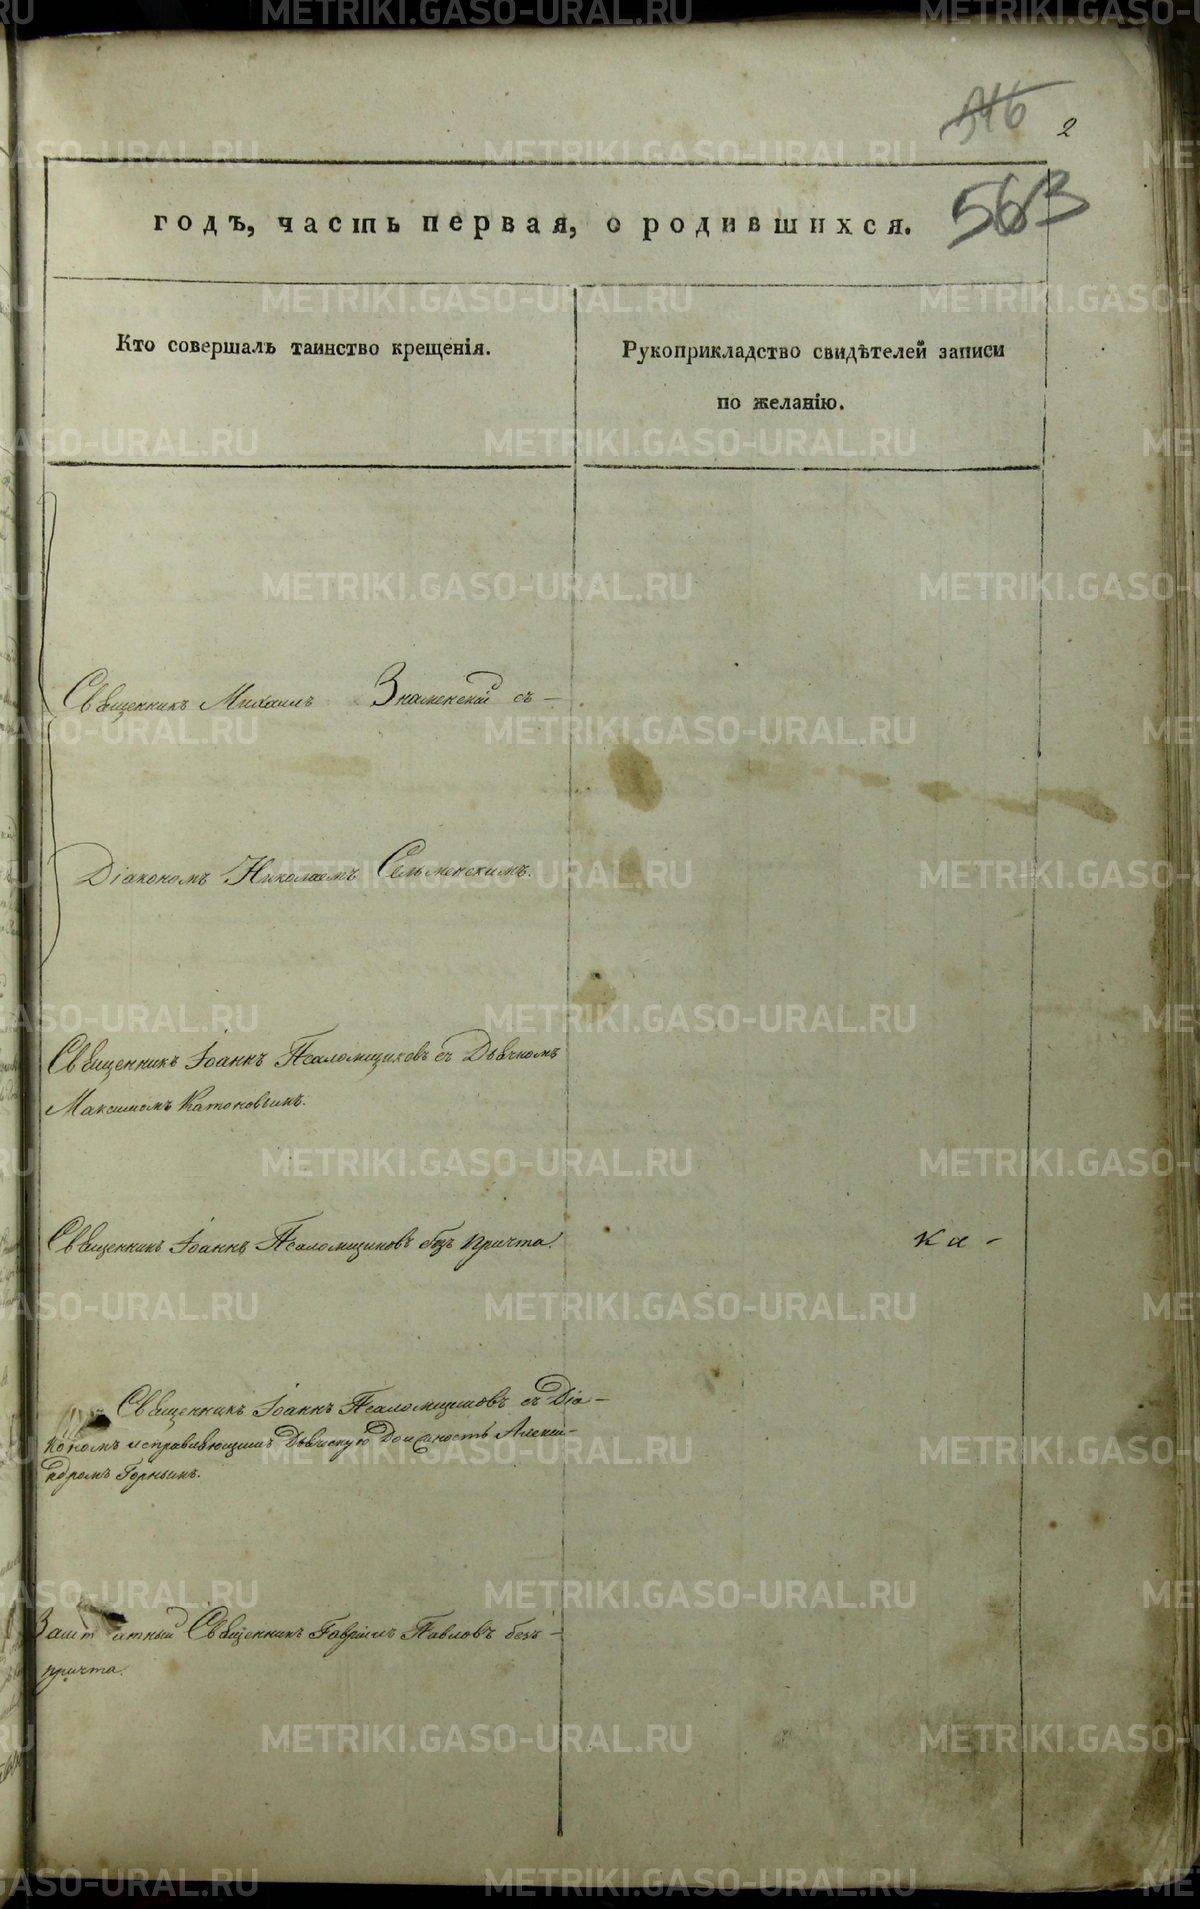 546
2
563
годъ, часть первая, о родившихся.
Кто совершалъ таинство крещенія.
Рукоприкладство свидѣтелей записи
по желанію.
Священникъ Михаилъ Знаменскій съ
Діакономъ Николаемъ Сельменскимъ.
Священникъ Іоаннъ Псаломщиковъ съ Дьячкомъ
Максимомъ Катоновымъ.
Священникъ Іоаннъ Псаломщиковъ безъ причта.
ка -
Священникъ Іоаннъ Псаломщиковъ съ Діа-
кономъ исправляющимъ Дьяческую Должность Алекса-
ндромъ Горнымъ.
Заштатный Священникъ Гавріилъ Павловъ безъ -
причта.
METRIKI.GASO-URAL.RU